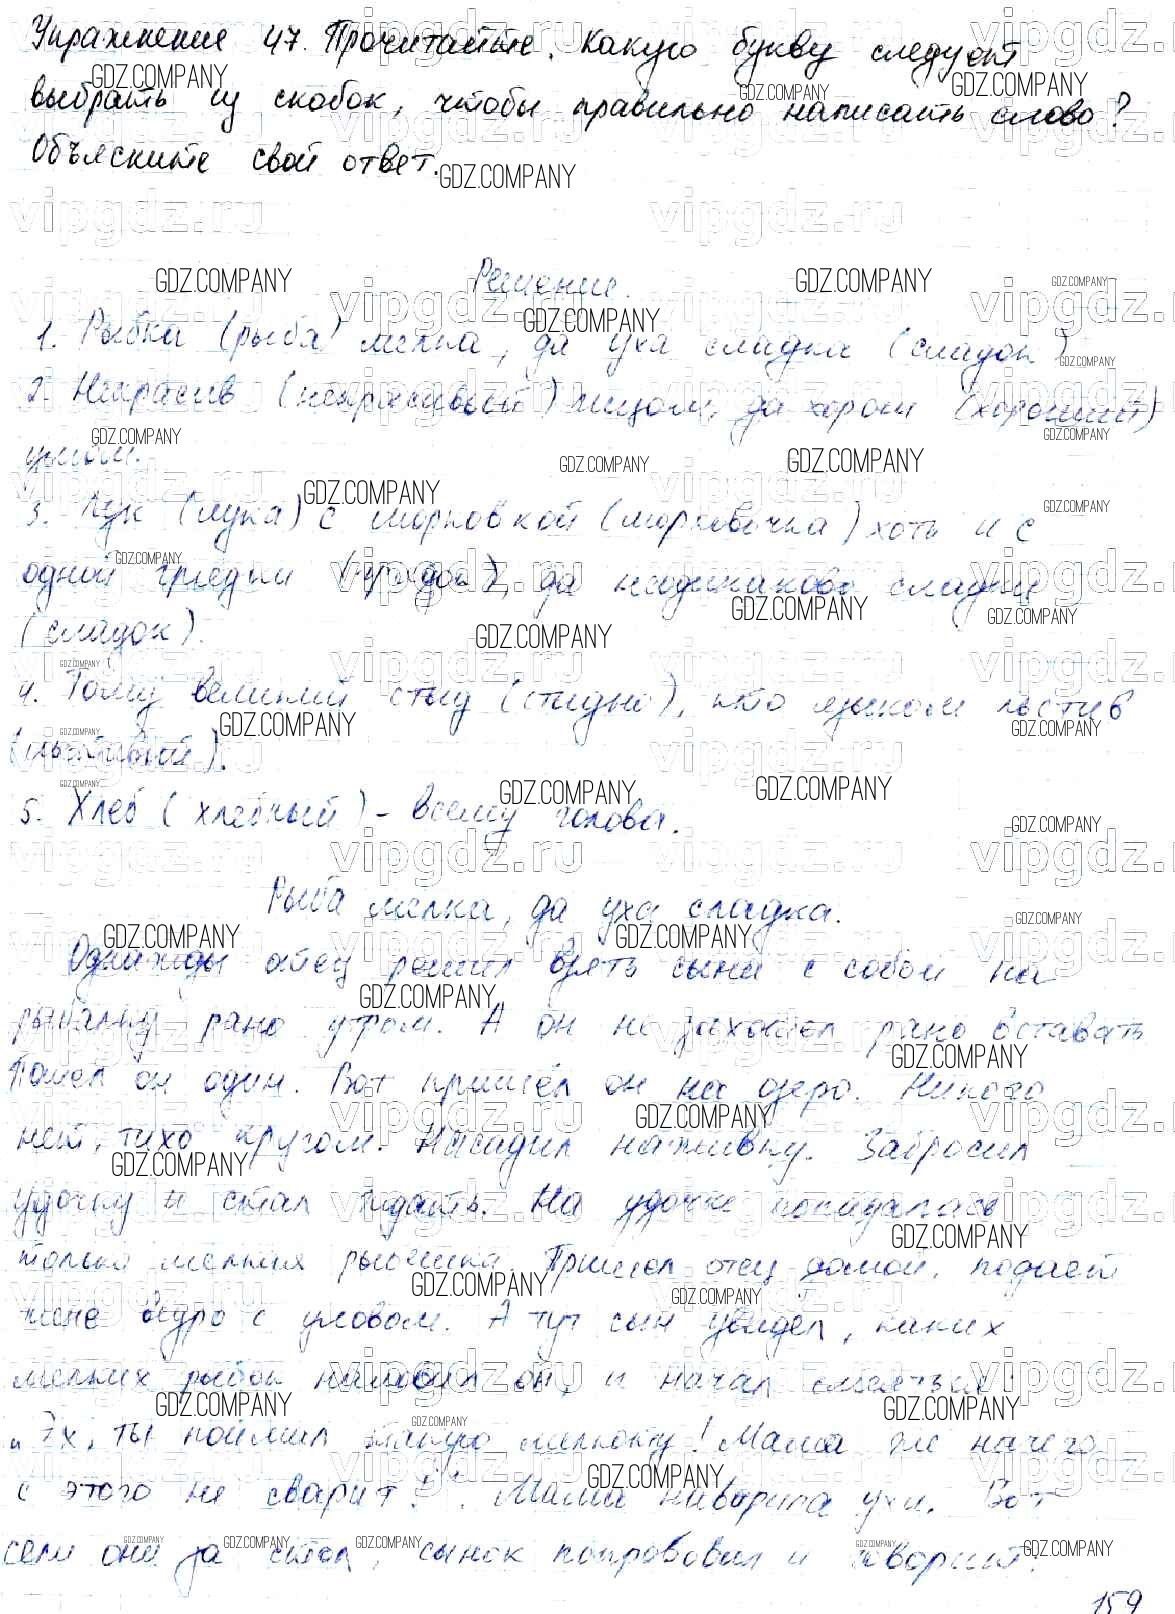 Упражнение 47. Прочитайте. Какую букву следует
выбрать из скобок, чтобы правильно написать слово?
Объясните свой ответ.
Решение.
1. Рыбка (рыба) мелка, да уха сладка (сладок)
2. Некрасив (некрасивый) лицом, да хорош (хороший)
умом.
3. Лук (лука) с морковкой (морковочка) хоть и с
одной грядки (грядок), да неодинаково сладки
(сладок).
4. Тому великий стыд (стыдно), кто языком льстив
(льстивый).
5. Хлеб (хлебный) - всему голова.
Рыба мелка, да уха сладка.
Однажды отец решил взять сына с собой на
рыбалку рано утром. А он не захотел рано вставать
Пошел он один. Вот пришёл он на озеро. Никого
нет, тихо кругом. Насадил наживку. Забросил
удочку и стал ждать. На удочке попадалась
только мелких рыбёшка. Пришел отец домой, подает
жене ведро с уловом. А тут сын увидел, каких
мелких рыбок наловил он, и начал смеяться:
"Эх, ты поймал такую мелкоту! Мама же ничего
с этого не сварит!". Мама наварила ухи. Вот
сели они за стол, сынок попробовал и говорит:
159
GDZ.COMPANY
vipgdz.ru